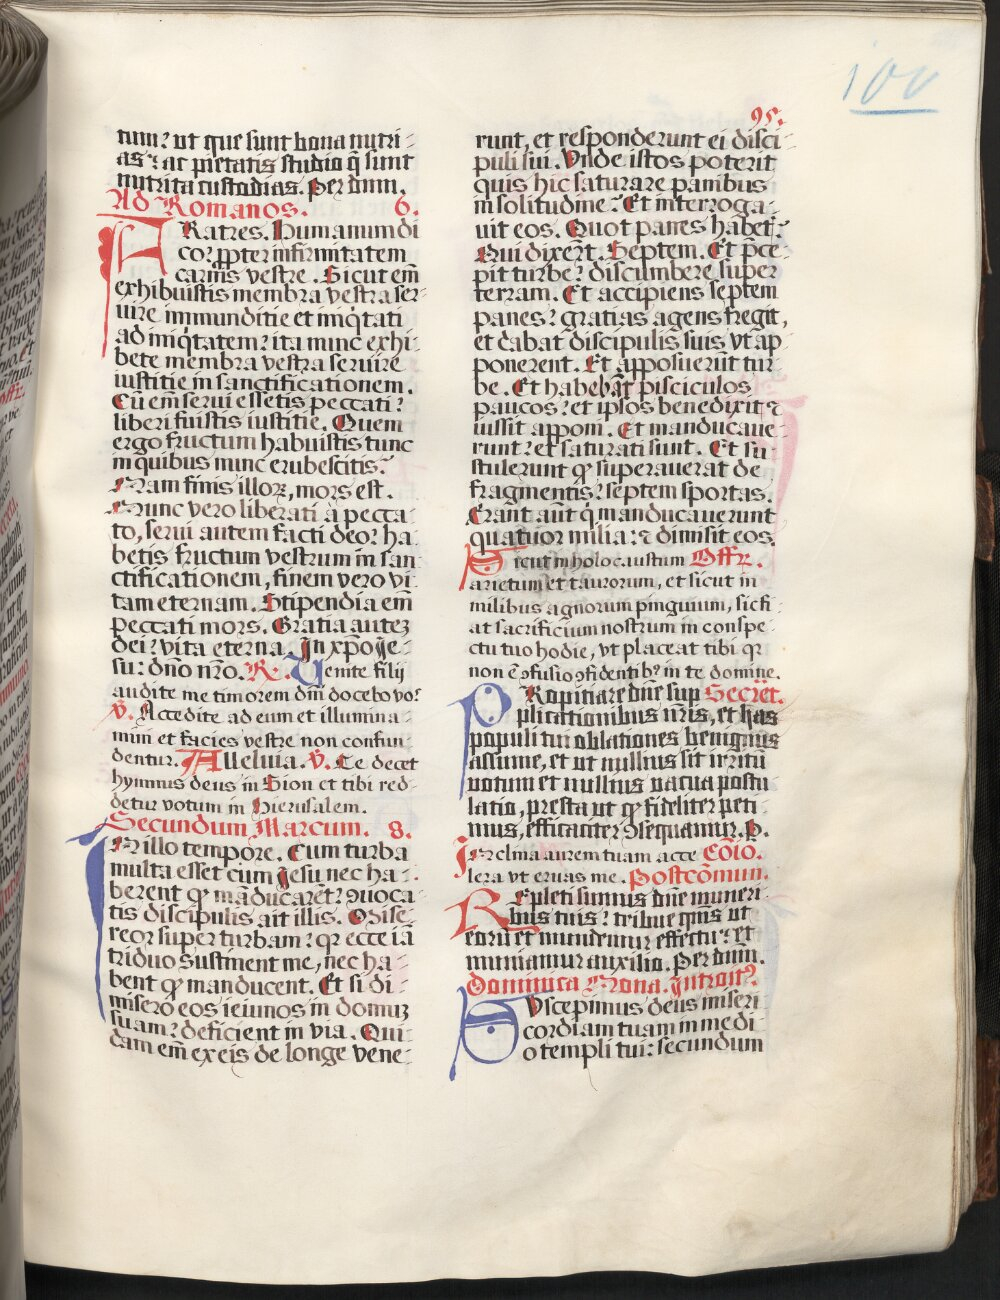 100
95.
tum? ut que sunt bona nutri-
as: ac pietatis studio q̃ sunt
nutrita custodias. Per dnm.
Ad Romanos. 6.
FRatres. Humanum di
co: ꝓpter infirmitatem
carnis vestre. Sicut em̃
exhibuistis membra vestra ser-
uire immunditie et iniq̇tati
ad iniq̇tatem? ita nunc exhi-
bete membra vestra seruire
iustitie in sanctificationem.
Cũ em̃ serui essetis peccati?
liberi fuistis iustitie. Quem
ergo fructum habuistis tunc
in quibus nunc erubescitis?
Nam finis illoꝝ, mors est.
Nunc vero liberati à pecca-
to, serui autem facti deo? ha-
betis fructum vestrum in san-
ctificationem, finem vero vi-
tam eternam. Stipendia em̃
peccati mors. Gratia autez
dei? vita eterna. In xp̃o ie-
su: dño nr̃o. R. Venite filij
audite me timorem dñi docebo vos
V. Accedite ad eum et illumina-
mini et facies vestre non confun-
dentur. Alleluia. V. Te decet
hymnus deus in Sion et tibi red-
detur votum in Hierusalem.
Secundum Marcum. 8.
IN illo tempore. Cum turba
multa esset cum Jesu nec ha-
berent qͫ mãducarẽt? ꝯuoca-
tis discipulis ait illis. Mise-
reor super turbam? qꝛ ecce iã
triduo sustinent me, nec ha-
bent qͫ manducent. Et si di-
misero eos ieiunos in domuz
suam? deficient in via. Qui-
dam em̃ ex eis de longe vene-
runt, et responderunt ei disci-
puli sui. Vnde istos poterit
quis hic saturare panibus
in solitudine? Et interroga-
uit eos. Quot panes habet̃?
Qui dixert̃. Septem. Et p̃ce-
pit turbe? discumbere super
terram. Et accipiens septem
panes? gratias agens fregit,
et dabat discipulis suis vt ap-
ponerent. Et apposuerũt tur-
be. Et habebãt pisciculos
paucos? et ipsos benedixit ⁊
iussit apponi. Et manducaue-
runt? et saturati sunt. Et su-
stulerunt qͫ superauerat de
fragmentis? septem sportas.
Erant aũt q̇ manducauerunt
quatuor milia: ⁊ dimisit eos.
Sicut in holocaustum Offr̃.
arietum et taurorum, et sicut in
milibus agnorum pinguium, sic fi-
at sacrificium nostrum in conspe-
ctu tuo hodie, vt placeat tibi qꝛ
non ẽ ꝯfusio ꝯfidentibꝰ in te domine.
PRopitiare dñe sup Secret̃.
plicationibus nr̃is, et has
populi tui oblationes benignus
assume, et ut nullius sit irritũ
votum et nullius vacua postu-
latio, presta ut qͫ fideliter peti-
mus, efficaciter ꝯsequamur. P.
INclina aurem tuam acce Cõio.
lera vt eruas me. Postcõmun.
REpleti sumus dñe muneri-
bus tuis? tribue q̃ms ut
eorũ et mundemur effectu: et
muniamur auxilio. Per dñm.
Dominica Nona. Introit?.
SVscepimus deus miseri-
cordiam tuam in medi-
o templi tui: secundum